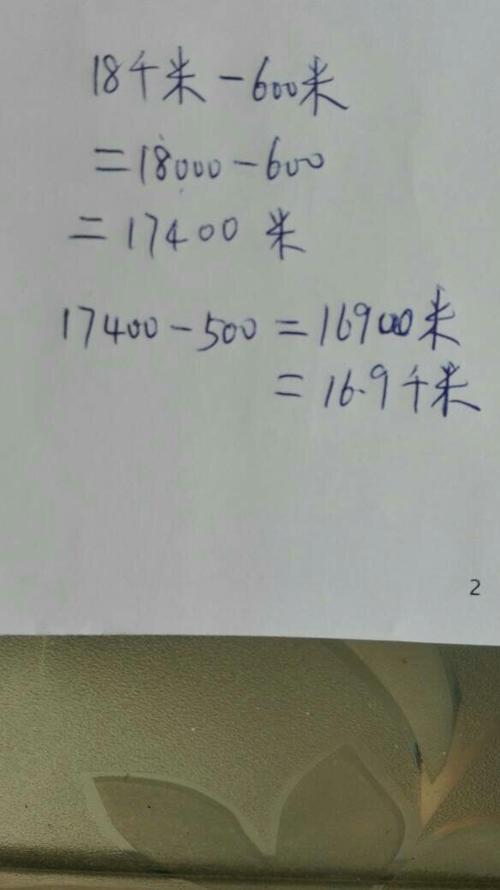 18千米-600米
=18000-600
=17400 米
17400-500=16900米
=16.9千米
2